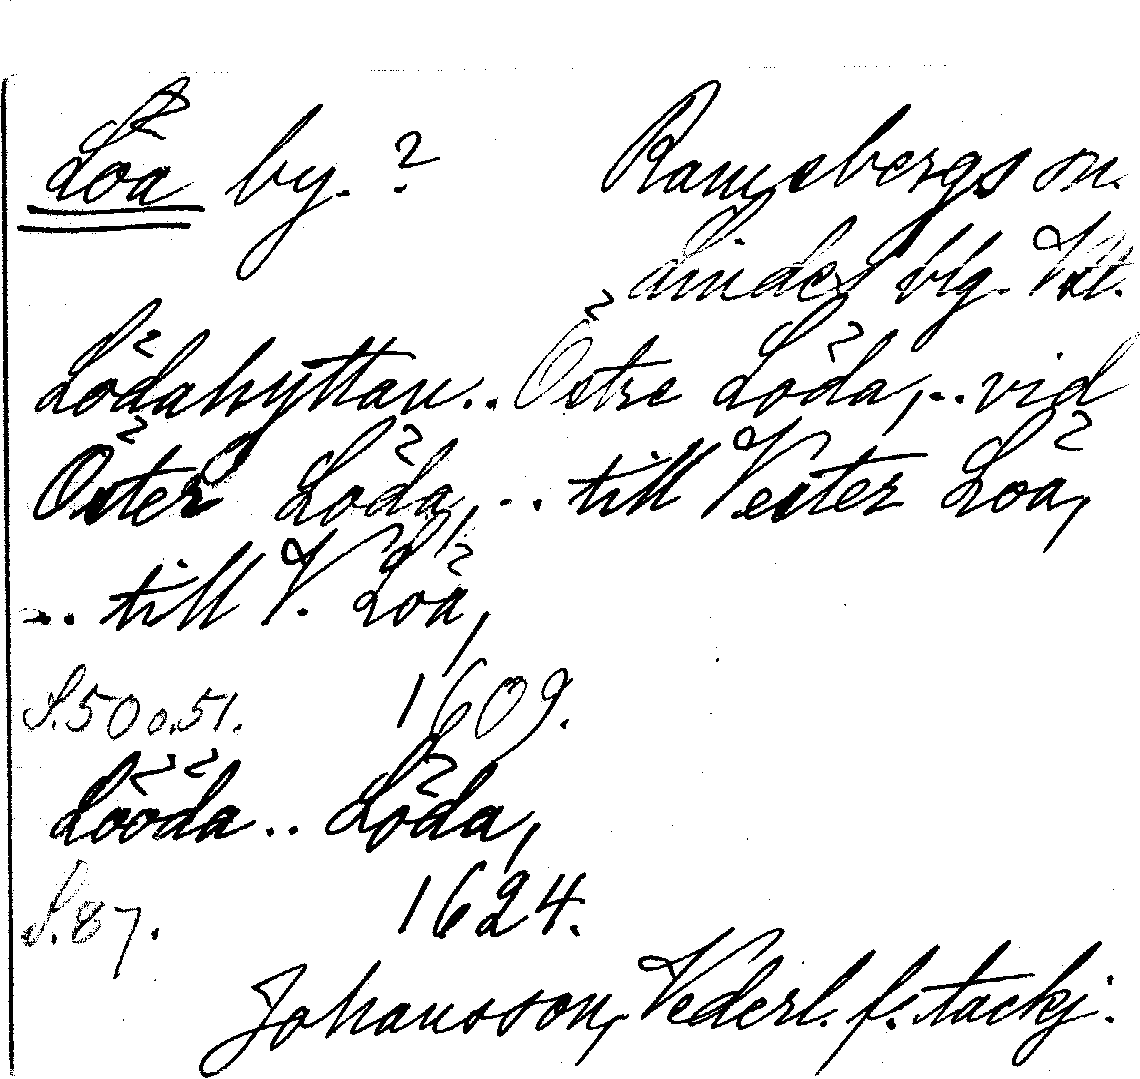 Löa by. ? Ramsbergs sn.
Lindes blg. Vstl.
Lödahyttan.. Östre Löda,.. vid
Öster Löda,.. till Vester Löa,
.. till V. Löa,
S. 50 o. 51. 1609.
Lööda.. Löda,
S. 87. 1624.
Johansson, Vederl. f. tackj.